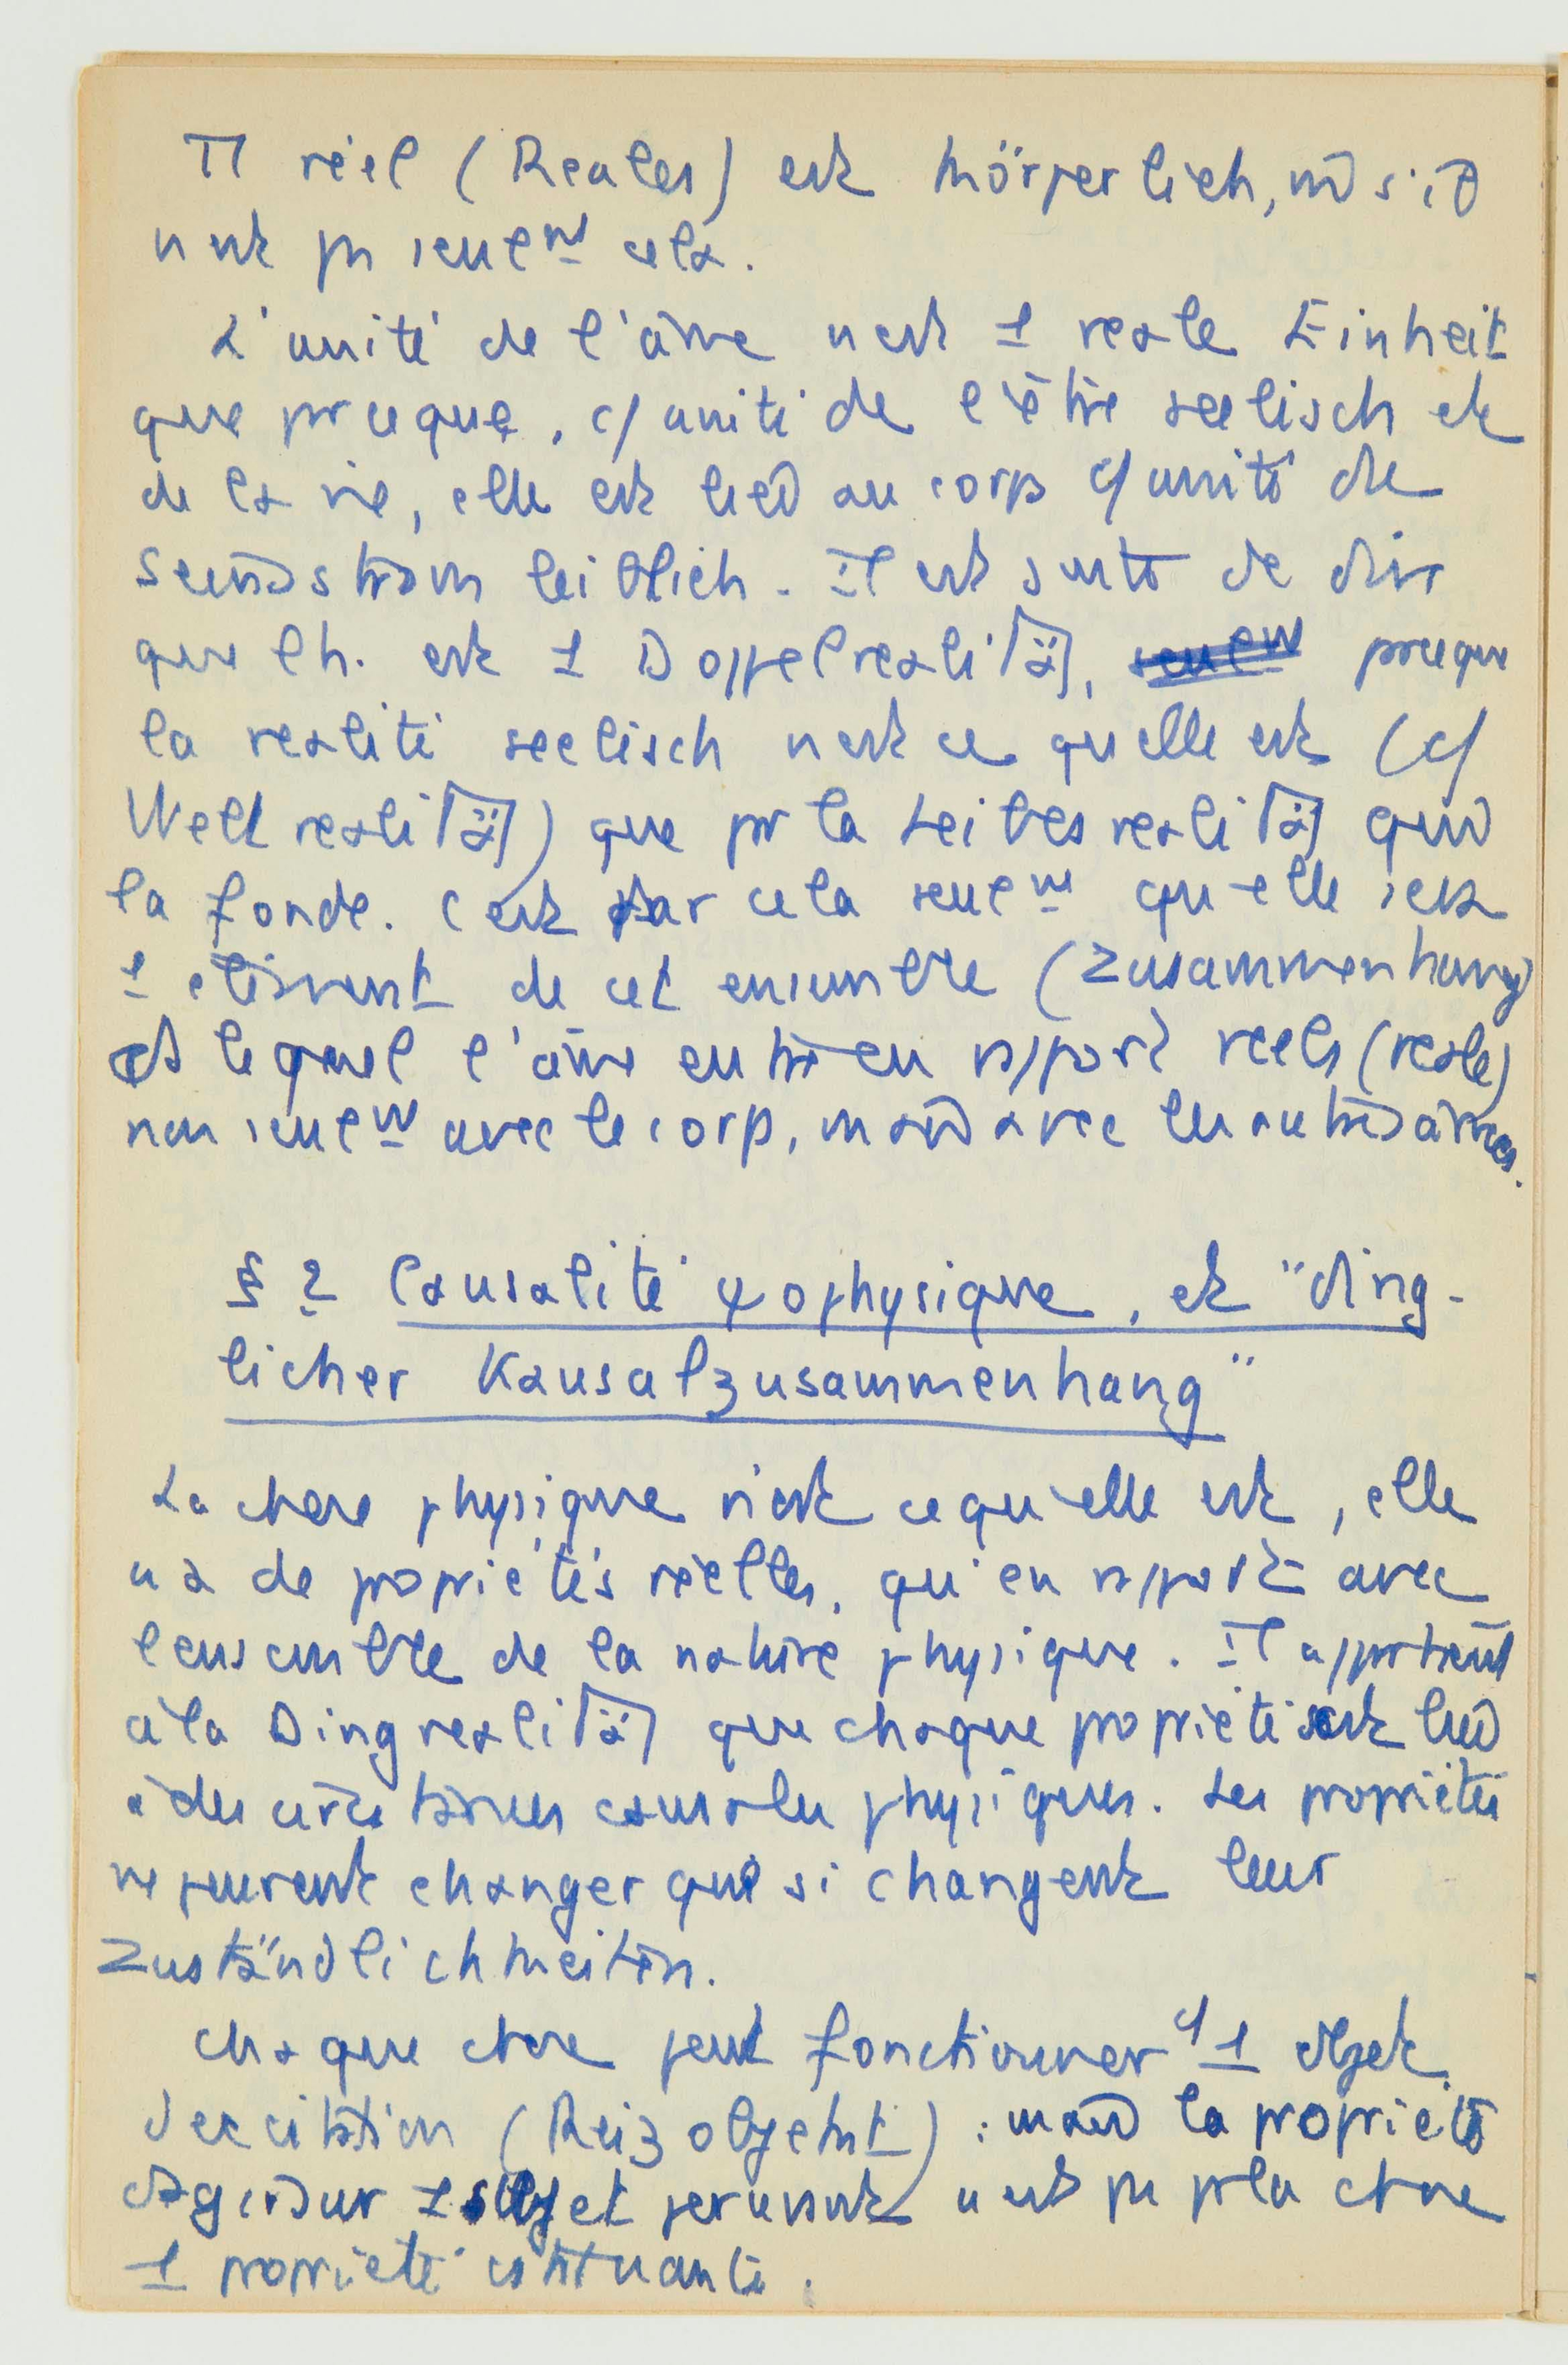 réel (Reales) est körperlich,
n'est pas seulem^nt cela.
L'unité de l'âme n'est 1 reale Einheit
que parceque, c/ unité de l'être seelisch et
de la vie, elle est au corps c/ unité de
leiblich. Il est de dire
que l'h. est 1 Doppelrealität, ~~seulem^nt~~ parceque
la realité seelisch n'est ce qu'elle est (c/
Weltrealität) que par la Leibesrealität qui
la fonde. C'est par cela seulem^nt qu'elle est
1 élément de cet ensemble (Zusammenhang)
lequel l'âme entre en rapport réels (reale)
non seulem^nt avec le corps, mais avec les autres âmes.
§ 2 Causalité ψophysique, et "ding-
licher Kausalzusammenhang"
La chose physique n'est ce qu'elle est, elle
n'a de propriétés réelles, qu'en rapport avec
l'ensemble de la nature physique. Il appartient
à la Dingrealität que chaque propriété
à des causales physiques. Les propriétés
ne peuvent changer que si changent leur
Zuständlichkeiten.
Chaque chose peut fonctionner c/ 1 objet
d'excitation (Reizobjekt) : mais la propriété
d'agir sur 1 sujet n'est pas p^r la chose
1 propriété constituante.